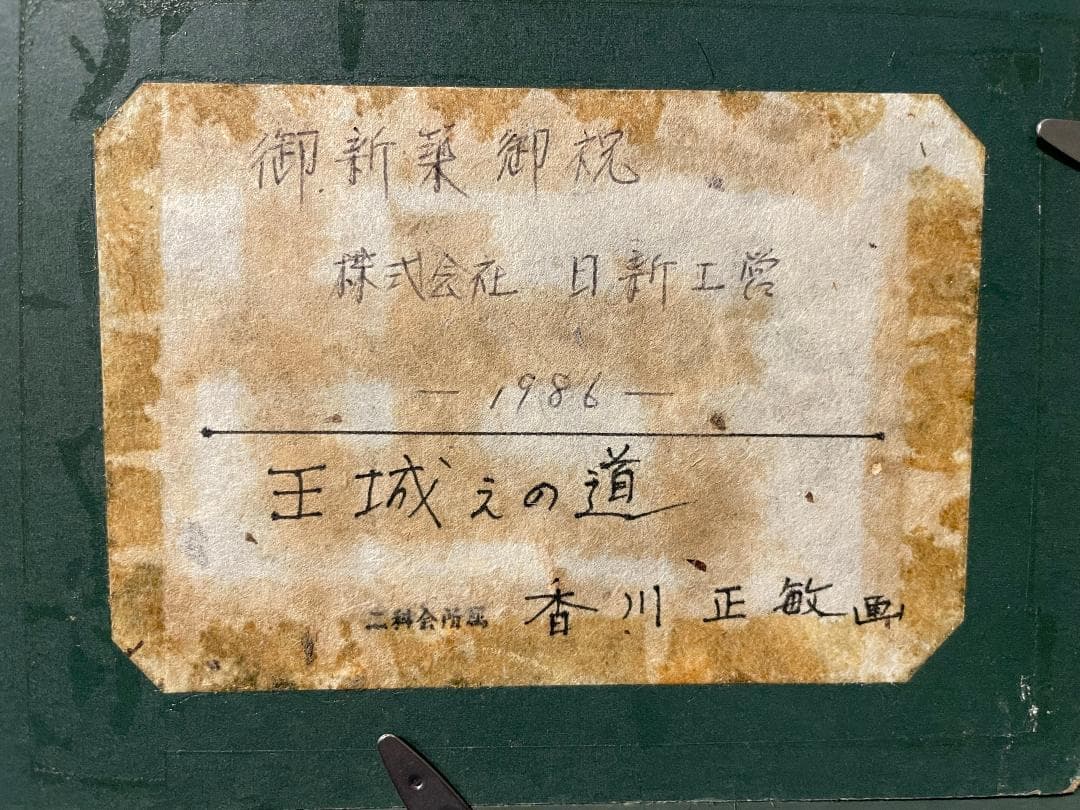 御新築御祝
株式会社 日新工営
— 1986 —
王城えの道
二科会所属 香川正敏画